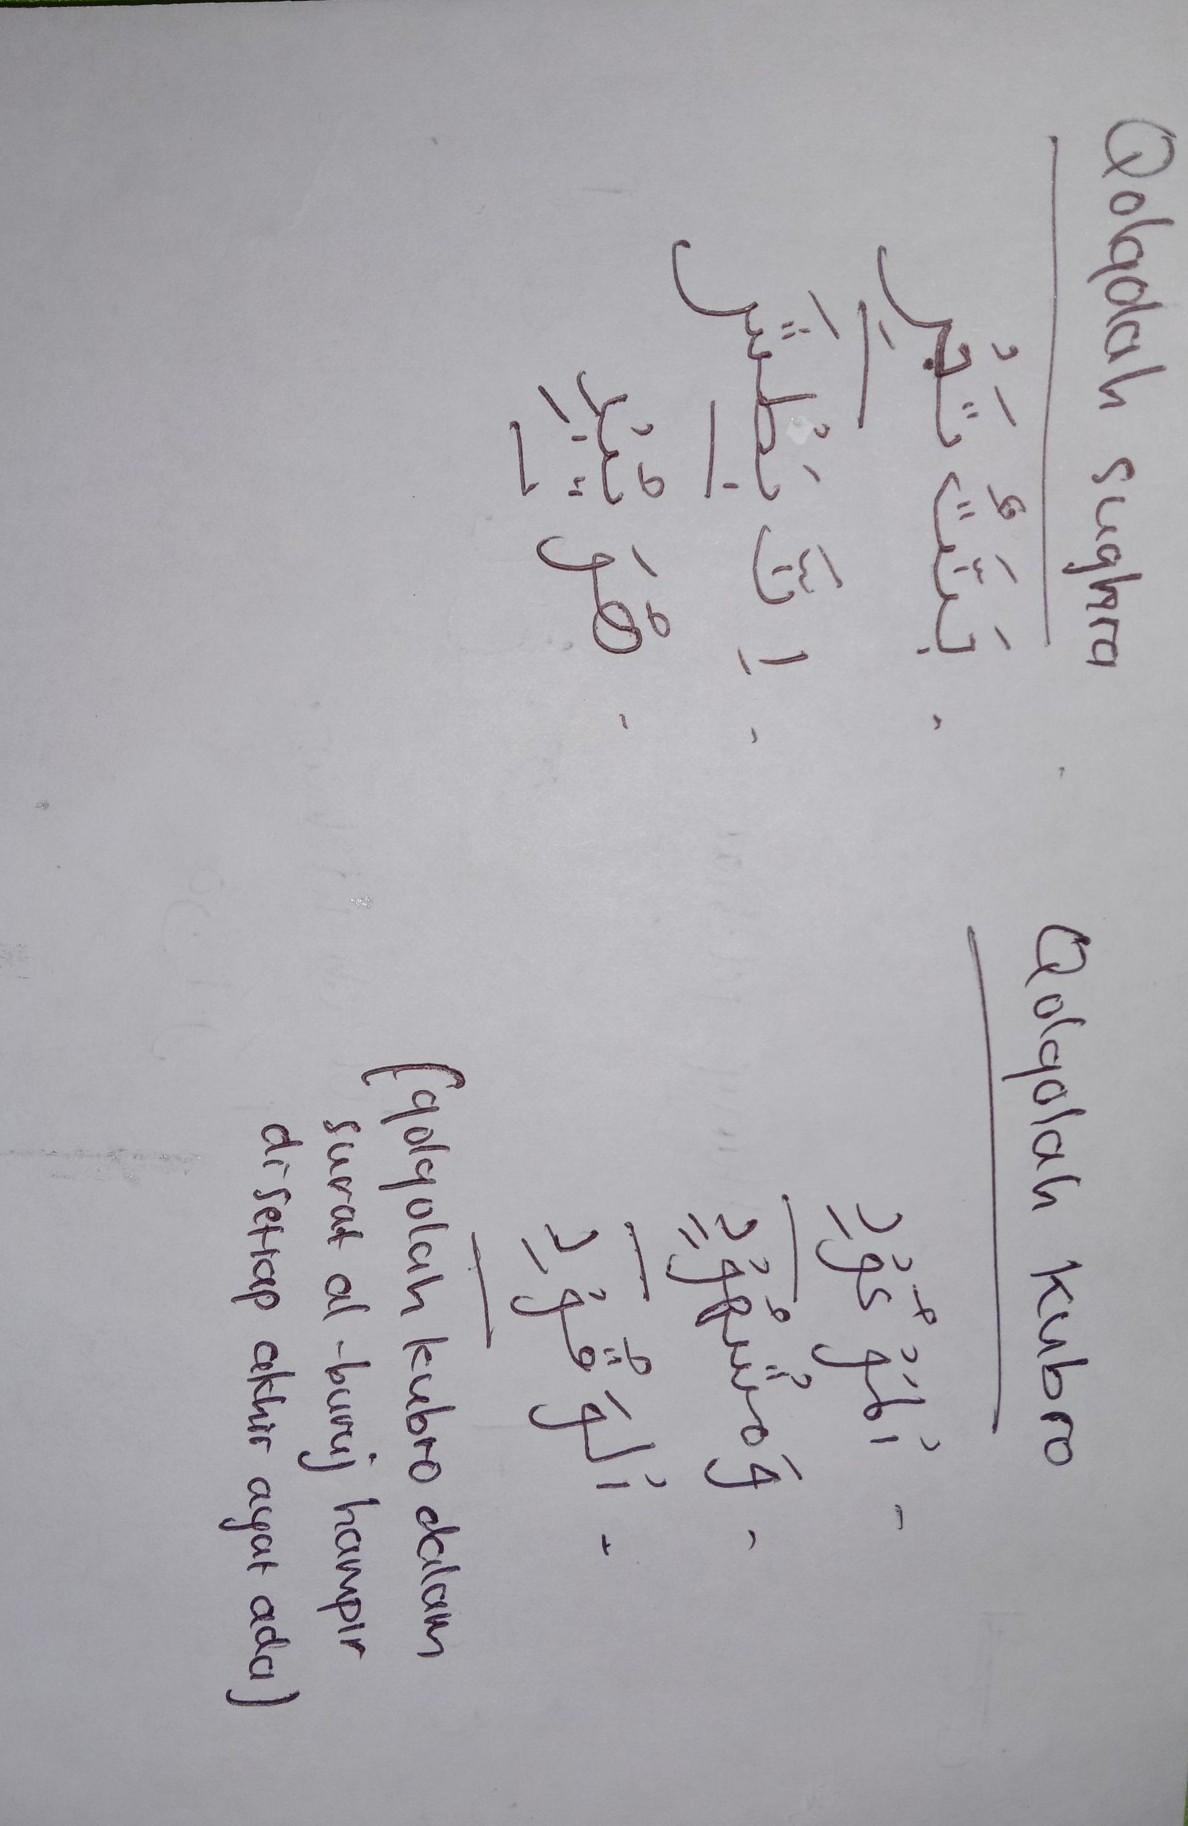 Qolqolah sughra
- اِنَّ بَطْشَ
- هُوَ يُبْدِ
Qolqolah kubro
- اْلمَوْعُوْدِ
- وَمَشْهُوْدٍ
- اْلوَقُوْدِ
(qolqolah kubro dalam
surat al-buruj hampir
di setiap akhir ayat ada)